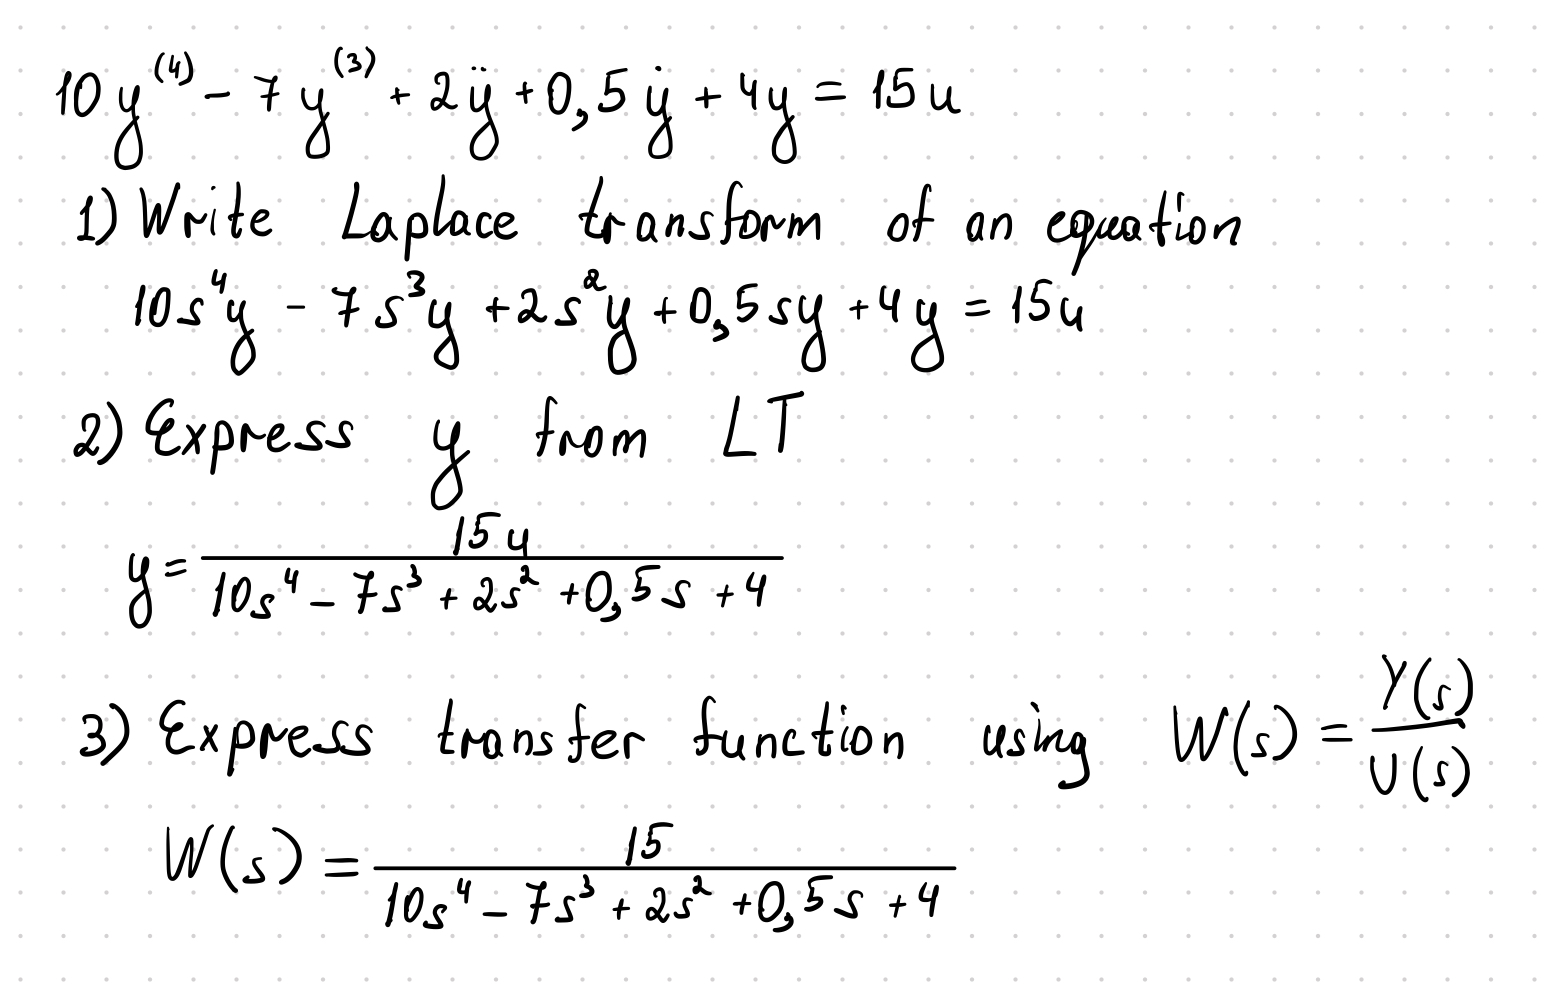 10y⁽⁴⁾ - 7y⁽³⁾ + 2ÿ + 0,5ẏ + 4y = 15u
1) Write Laplace transform of an equation
10s⁴y - 7s³y + 2s²y + 0,5sy + 4y = 15u
2) Express y from LT
y = 15u / (10s⁴ - 7s³ + 2s² + 0,5s + 4)
3) Express transfer function using W(s) = Y(s) / U(s)
W(s) = 15 / (10s⁴ - 7s³ + 2s² + 0,5s + 4)